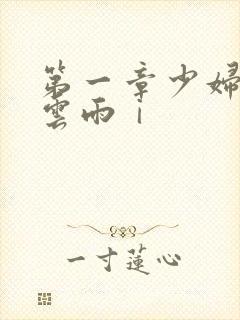 第一章少婦
雲雨｜
一寸蓮心